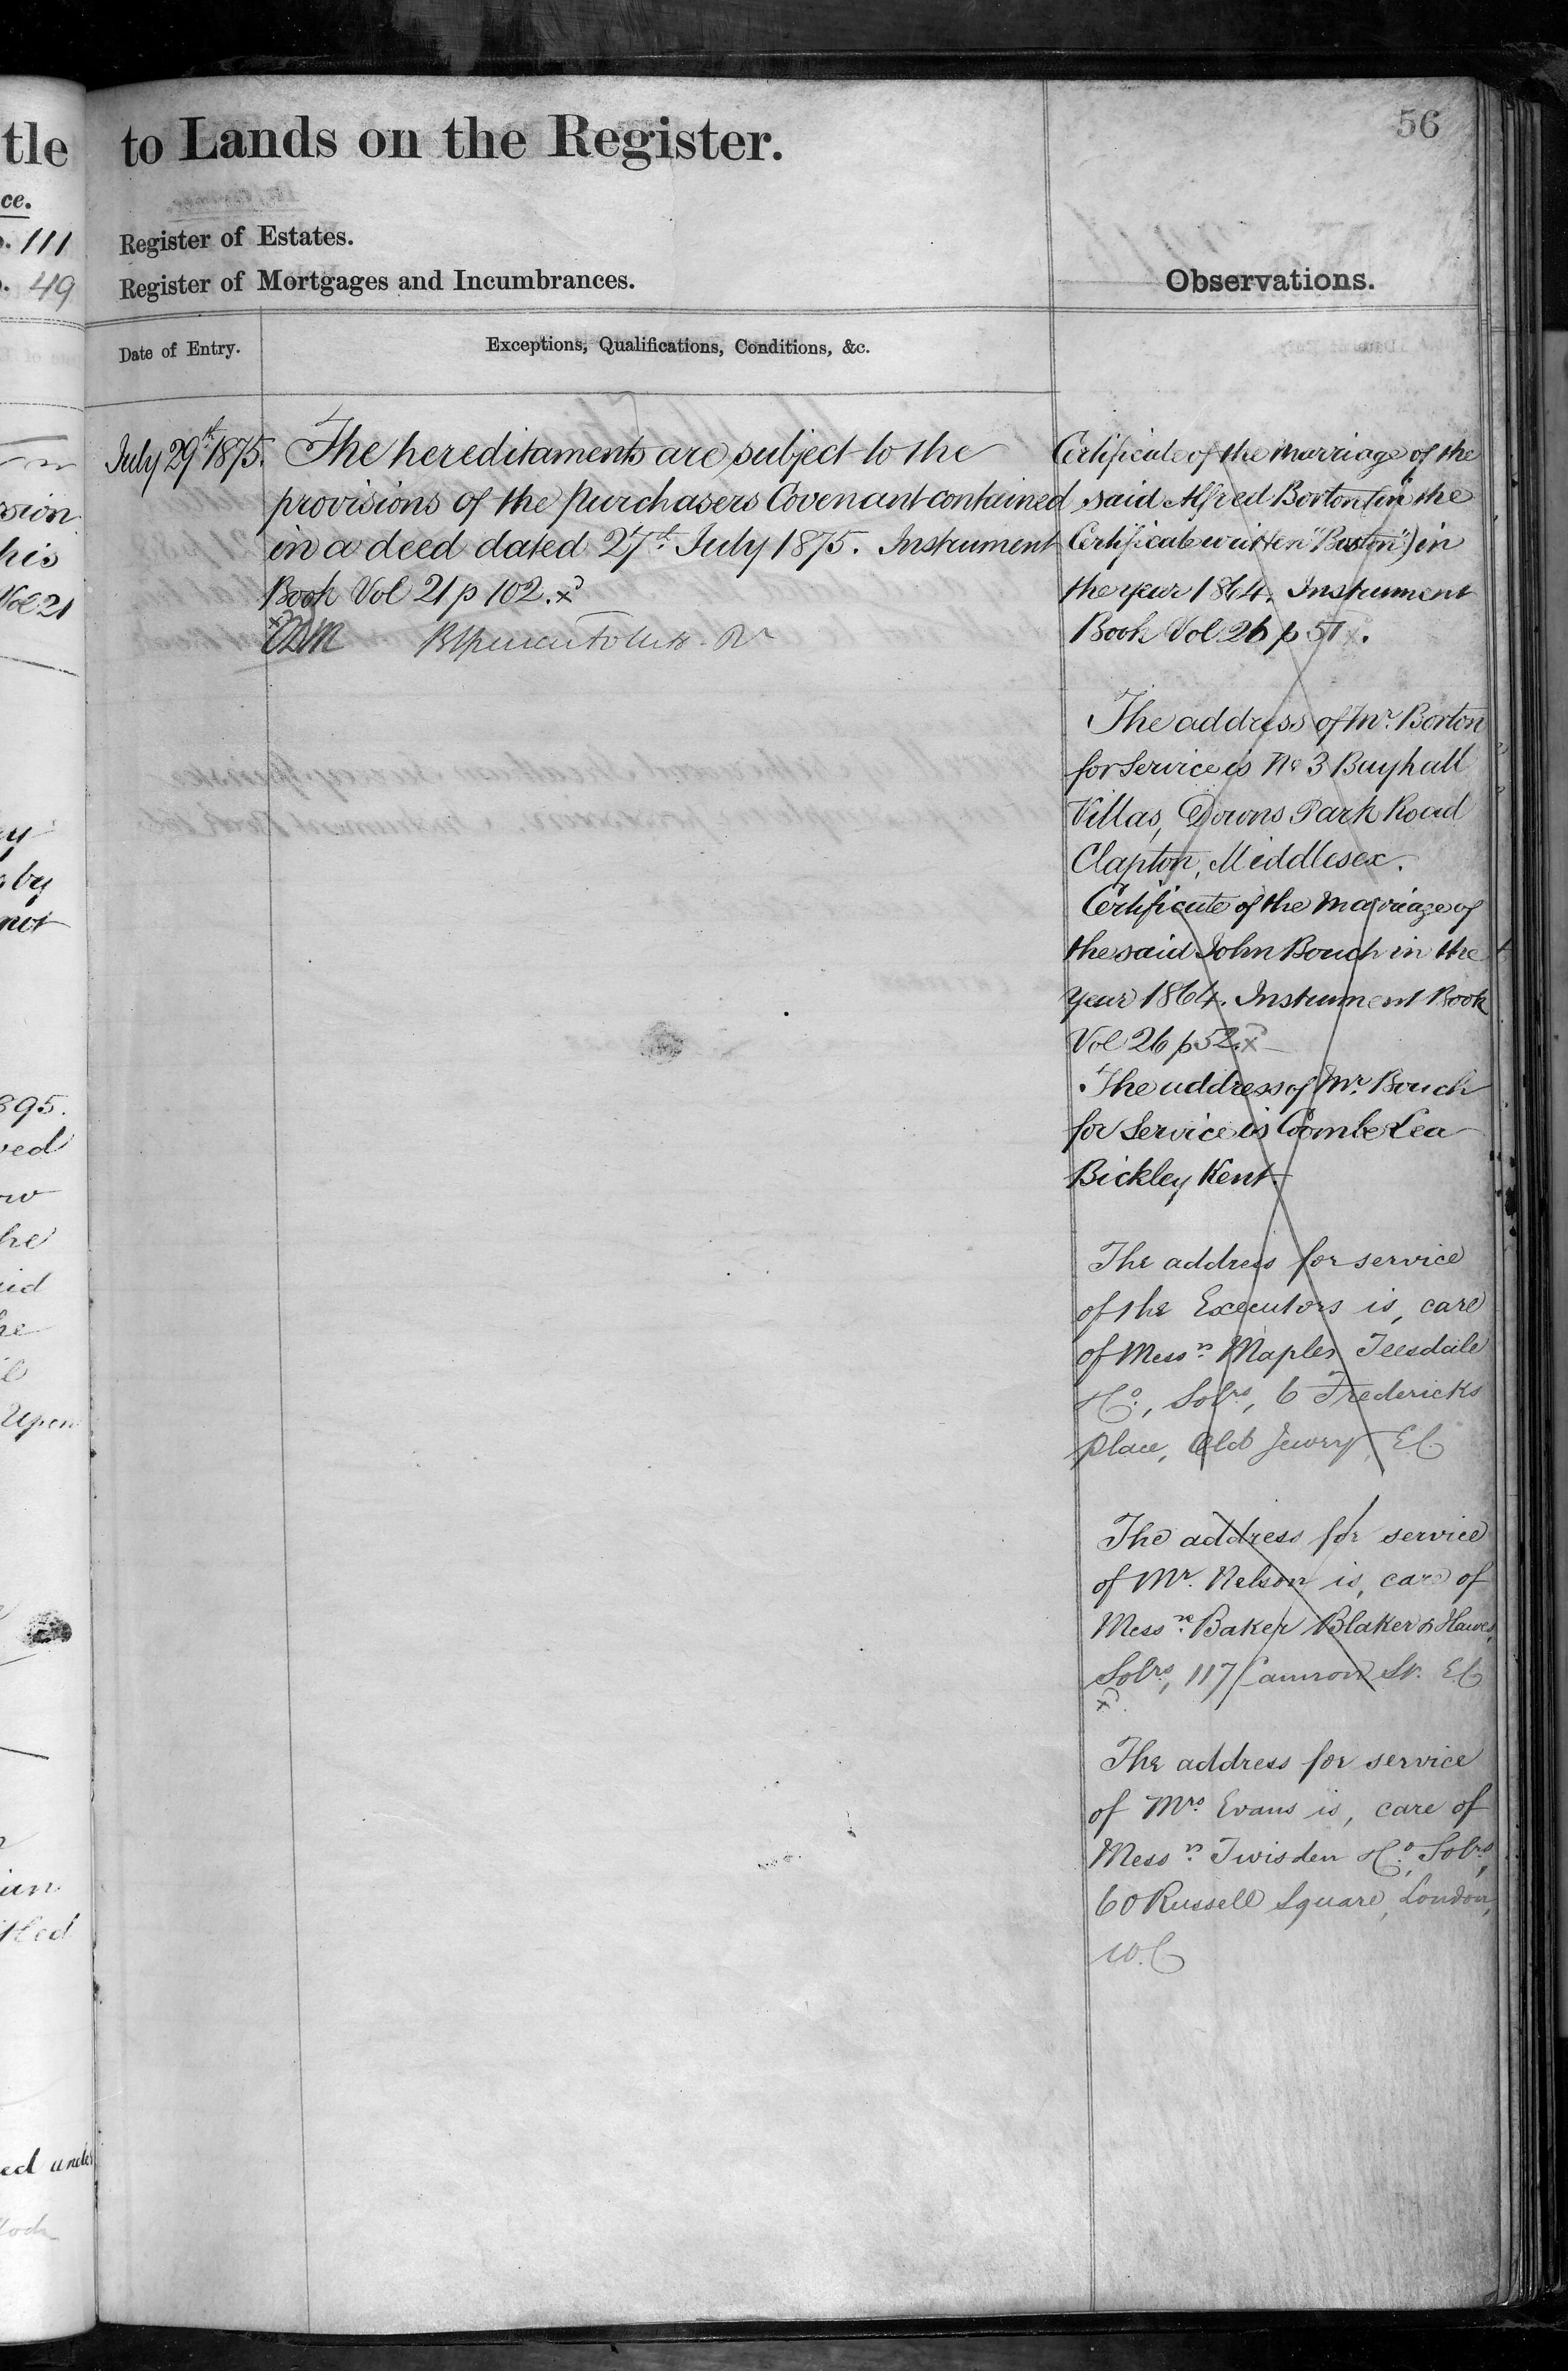 tle
ce.
. 111
. 49
sion
his
Vol 21
by
not
895.
ved
he
Upon
ed under
to Lands on the Register.
56
Register of Estates.
Register of Mortgages and Incumbrances.
Observations.
Date of Entry.
Exceptions, Qualifications, Conditions, &c.
July 29th 1875.
The hereditaments are subject to the
provisions of the Purchasers Covenant contained
in a deed dated 27th July 1875. Instrument
Book Vol 21 p 102. x
Certificate of the Marriage of the
said Alfred Borton (in the
Certificate written "Buston") in
the year 1864. Instrument
Book Vol 26 p 51.
The address of Mr. Borton
for Service is No 3 Bayhall
Villas, Downs Park Road
Clapton, Middlesex.
Certificate of the Marriage of
the said John Bouch in the
year 1864. Instrument Book
Vol 26 p 52. x
The address of Mr. Bouch
for Service is Coombe Lea
Bickley Kent.
The address for service
of the Executors is, care
of Messrs. Maples Teesdale
& Co., Solrs, 6 Fredericks
Place, Old Jewry, E.C
The address for service
of Mr. Nelson is, care of
Messrs. Baker Blaker & Hawes,
Solrs, 117 Cannon St. E.C
x
The address for service
of Mrs. Evans is, care of
Messrs. Twisden & Co., Solrs,
60 Russell Square, London,
W.C